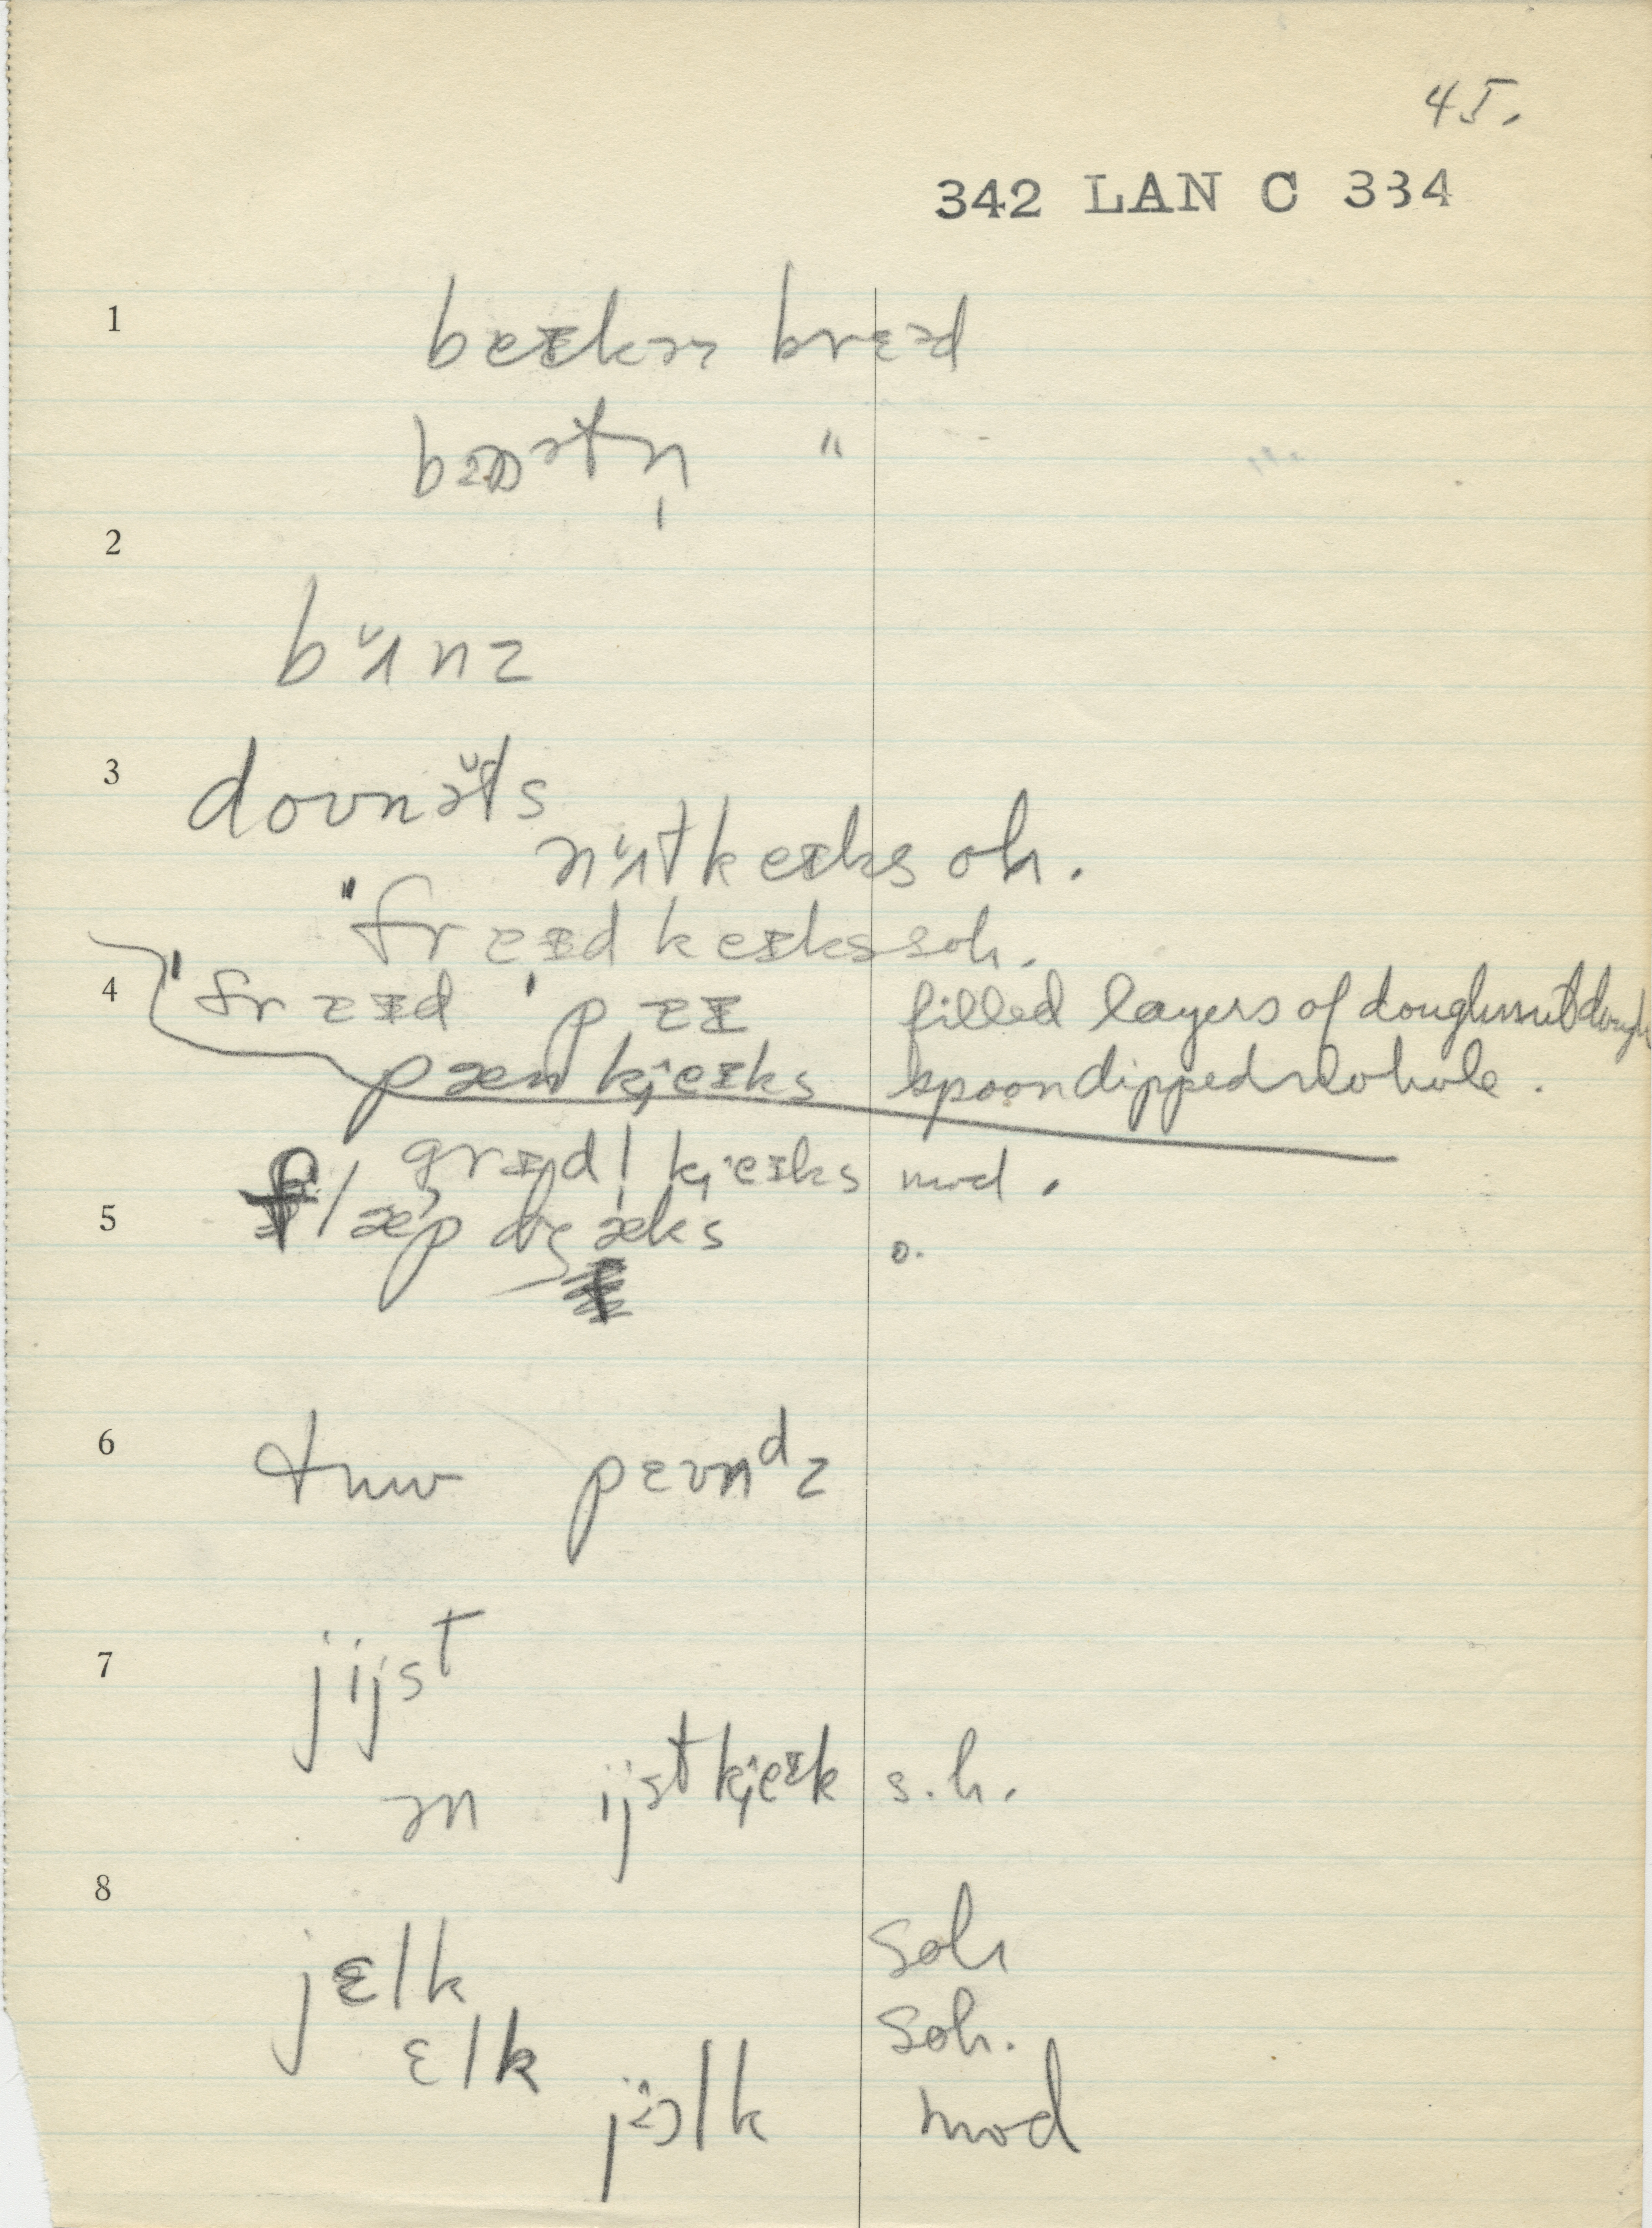 45.
342 LAN C 334
1
beɪkəz brɛəd
"
2
bʌ̆nz
3
doʊnə̆ts
nʌ̆tkeɪks oh.
ˈfraɪd keɪks soh.
4 ˈfraɪd ˈpaɪ filled layers of doughnut dough
pæn kj̨eɪks spoon dipped
grɪdl̩ kj̨eɪks mod.
5 flæpdʒæks o.
6 tuw pɛʊnᵈz
7 jijst
ən ijst kj̨eɪk s.h.
8
jɛlk soh
ɛlk soh.
jɔ̈lk mod